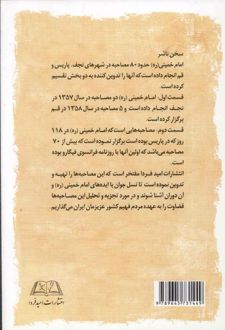 سخن ناشر
امام خمینی (ره) حدود ۸۰ مصاحبه در شهرهای نجف، پاریس و
قم انجام داده است که آنها را تدوین کننده به دو بخش تقسیم
کرده است.
قسمت اول: امام خمینی (ره) دو مصاحبه در سال ۱۳۵۷ در
نجف انجام داده است و ۵ مصاحبه در سال ۱۳۵۸ در قم
برگزار کرده است.
قسمت دوم: مصاحبه‌هایی است که امام خمینی (ره) در ۱۱۸
روز که در پاریس بوده است برگزار نموده است که بیش از ۷۰
مصاحبه می‌باشد که اولین آنها با روزنامه فرانسوی فیگارو بوده
است.
انتشارات امید فردا مفتخر است که این مصاحبه‌ها را تهیه و
تدوین نموده است تا نسل جوان با ایده‌های امام خمینی (ره) و
آن دوران آشنا شوند و در مورد تجزیه و تحلیل این مصاحبه‌ها
قضاوت را به عهده مردم فهیم کشور عزیزمان ایران می‌گذاریم.
انتشارات امید فردا
9789645731449